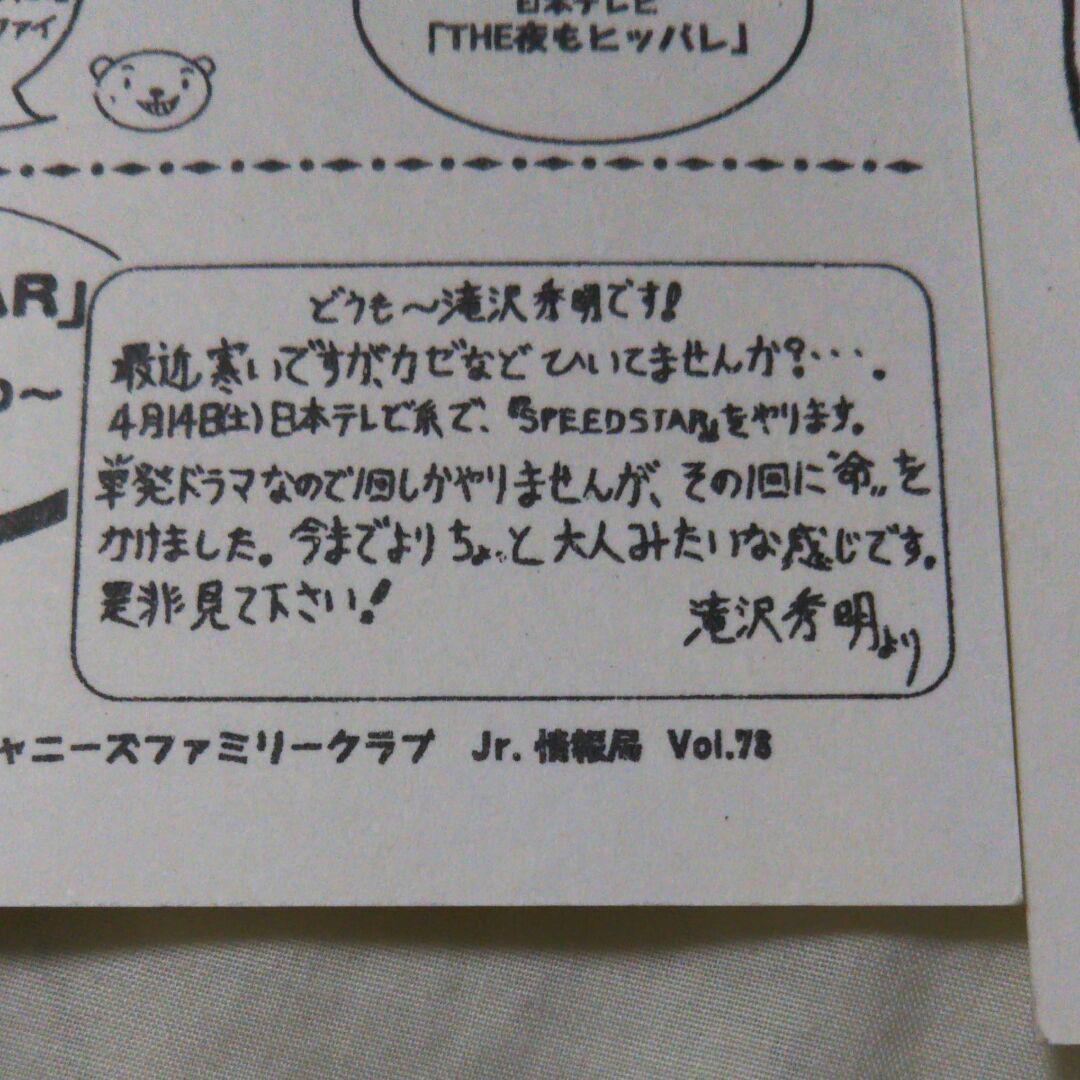 ファイ
日本テレビ
「THE夜もヒッパレ」
AR」
どうも〜滝沢秀明です!
最近寒いですが、カゼなどひいてませんか?・・・。
4月14日(土)日本テレビ系で、『SPEEDSTAR』をやります。
単発ドラマなので1回しかやりませんが、その1回に“命”を
かけました。今までよりちょっと大人みたいな感じです。
是非見て下さい!
滝沢秀明より
ャニーズファミリークラブ Jr.情報局 Vol.78